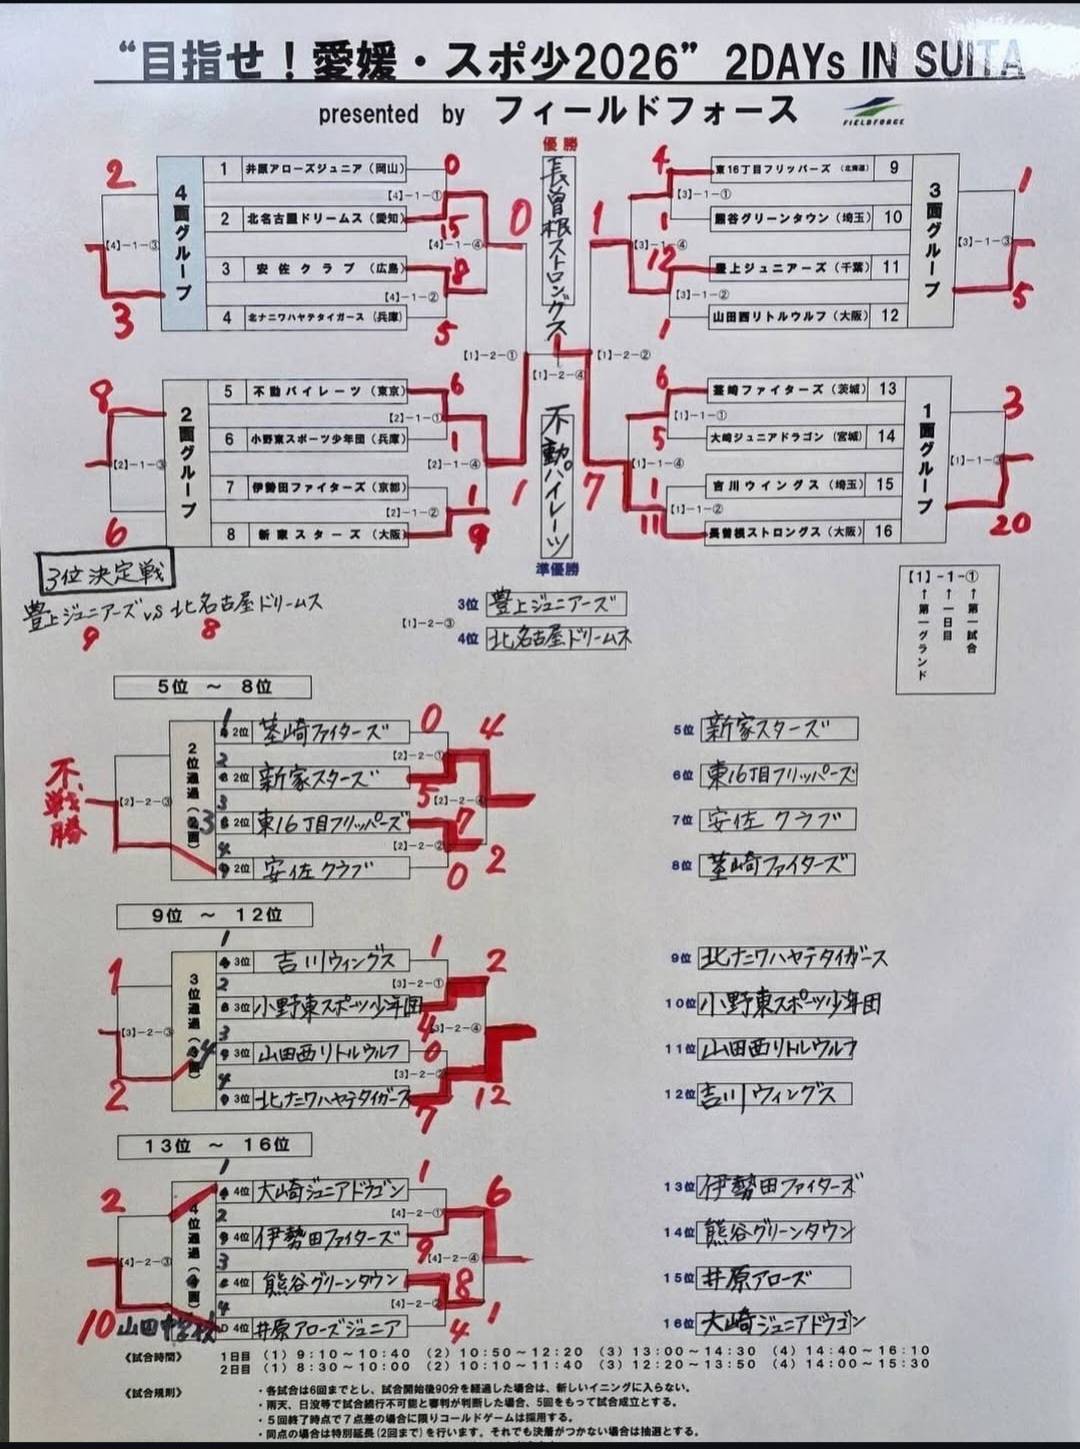 “目指せ！愛媛・スポ少2026” 2DAYs IN SUITA
presented by フィールドフォース
FIELDFORCE
優勝
長曽根ストロングス
不動パイレーツ
準優勝
4面グループ
1 井原アローズジュニア（岡山） 0
【4】-1-①
2 北名古屋ドリームス（愛知） 15
【4】-1-④
3 安佐クラブ（広島） 8
【4】-1-②
4 北ナニワハヤテタイガース（兵庫） 5
2
【4】-1-③
3
0
2面グループ
5 不動パイレーツ（東京） 6
【2】-1-①
6 小野東スポーツ少年団（兵庫） 1
【2】-1-④
7 伊勢田ファイターズ（京都） 1
【2】-1-②
8 新家スターズ（大阪） 9
8
【2】-1-③
6
1
【1】-2-①
【1】-2-②
1
【1】-2-④
3面グループ
4 東16丁目フリッパーズ（北海道） 9
【3】-1-①
1 熊谷グリーンタウン（埼玉） 10
【3】-1-④
12 豊上ジュニアーズ（千葉） 11
【3】-1-②
1 山田西リトルウルフ（大阪） 12
1
【3】-1-③
5
1
1面グループ
6 茎崎ファイターズ（茨城） 13
【1】-1-①
5 大崎ジュニアドラゴン（宮城） 14
【1】-1-④
1 吉川ウイングス（埼玉） 15
【1】-1-②
11 長曽根ストロングス（大阪） 16
3
【1】-1-③
20
7
3位決定戦
豊上ジュニアーズ vs 北名古屋ドリームス
9 8
【1】-2-③
3位 豊上ジュニアーズ
4位 北名古屋ドリームス
【1】-1-①
↑第一グランド
↑一日目
↑第一試合
5位 ～ 8位
2位通過
1 2位 茎崎ファイターズ 0
【2】-2-①
2 2位 新家スターズ 5
【2】-2-④
3 2位 東16丁目フリッパーズ 7
【2】-2-②
4 2位 安佐クラブ 0
4
2
不戦勝
【2】-2-③
5位 新家スターズ
6位 東16丁目フリッパーズ
7位 安佐クラブ
8位 茎崎ファイターズ
9位 ～ 12位
3位通過
1 3位 吉川ウィングス 1
【3】-2-①
2 3位 小野東スポーツ少年団 4
【3】-2-④
3 3位 山田西リトルウルフ 0
【3】-2-②
4 3位 北ナニワハヤテタイガース 7
2
12
1
【3】-2-③
2
9位 北ナニワハヤテタイガース
10位 小野東スポーツ少年団
11位 山田西リトルウルフ
12位 吉川ウィングス
13位 ～ 16位
4位通過
1 4位 大崎ジュニアドラゴン 1
【4】-2-①
2 4位 伊勢田ファイターズ 9
【4】-2-④
3 4位 熊谷グリーンタウン 8
【4】-2-②
4 4位 井原アローズジュニア 4
6
1
2
【4】-2-③
10
山田中学校
13位 伊勢田ファイターズ
14位 熊谷グリーンタウン
15位 井原アローズ
16位 大崎ジュニアドラゴン
《試合時間》 1日目 （1）9：10～10：40 （2）10：50～12：20 （3）13：00～14：30 （4）14：40～16：10
2日目 （1）8：30～10：00 （2）10：10～11：40 （3）12：20～13：50 （4）14：00～15：30
《試合規則》 ・各試合は6回までとし、試合開始後90分を経過した場合は、新しいイニングに入らない。
・雨天、日没等で試合続行不可能と審判が判断した場合、5回をもって試合成立とする。
・5回終了時点で7点差の場合に限りコールドゲームは採用する。
・同点の場合は特別延長(2回まで)を行います。それでも決着がつかない場合は抽選とする。